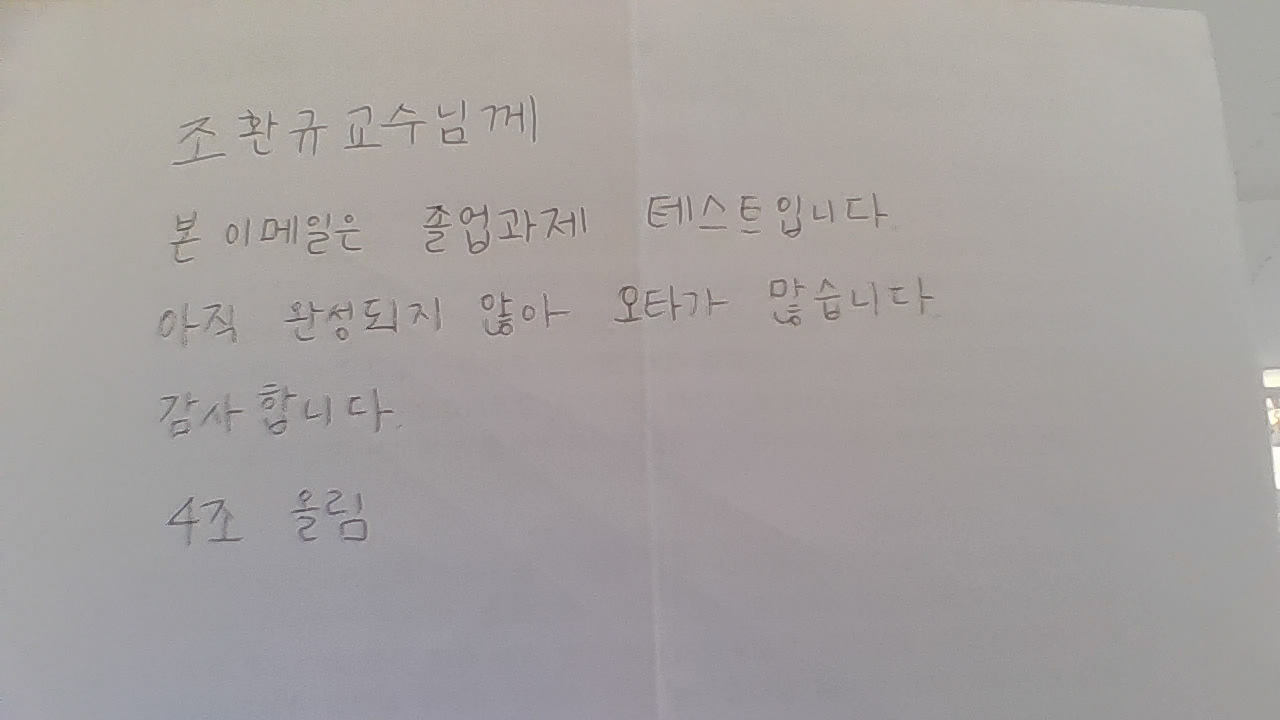 조환규교수님께
본 이메일은 졸업과제 테스트입니다.
아직 완성되지 않아 오타가 많습니다.
감사합니다.
4조 올림